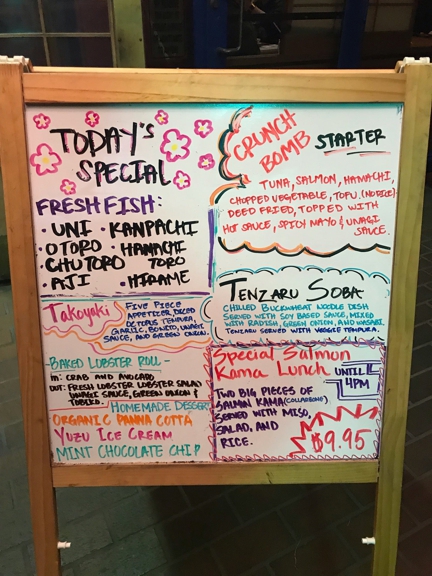 TODAY'S
SPECIAL
FRESH FISH:
• UNI • KANPACHI
• OTORO • HAMACHI
• CHUTORO TORO
• AJI • HIRAME
CRUNCH
BOMB STARTER
TUNA, SALMON, HAMACHI,
CHOPPED VEGETABLE, TOFU. (NO RICE)
DEED FRIED, TOPPED WITH
HOT SAUCE, SPICY MAYO & UNAGI
SAUCE.
Takoyaki
FIVE PIECE
APPETIZER, DICED
OCTOPUS TENPURA,
GARLIC, BONITO, UNAGI
SAUCE, AND GREEN ONION.
TENZARU SOBA
CHILLED BUCKWHEAT NOODLE DISH
SERVED WITH SOY BASED SAUCE, MIXED
WITH RADISH, GREEN ONION, AND WASABI.
TENZARU SERVED WITH VEGGIE TEMPURA.
BAKED LOBSTER ROLL -
IN: CRAB AND AVOCADO
OUT: FRESH LOBSTER LOBSTER SALAD
UNAGI SAUCE, GREEN ONION &
TOBIKO.
HOMEMADE DESSERT
ORGANIC PANNA COTTA
YUZU ICE CREAM
MINT CHOCOLATE CHIP
Special Salmon
Kama Lunch
UNTIL
4PM
TWO BIG PIECES OF
SALMON KAMA (COLLARBONE)
SERVED WITH MISO,
SALAD, AND
RICE.
$9.95